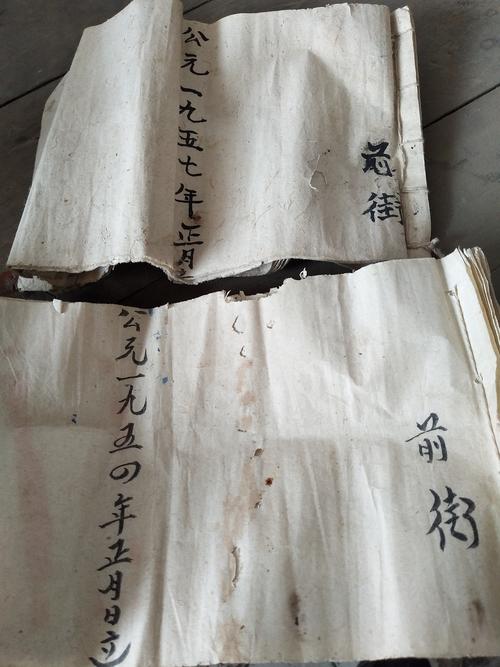 前街
公元一九五七年正月
前街
公元一九五四年正月日立